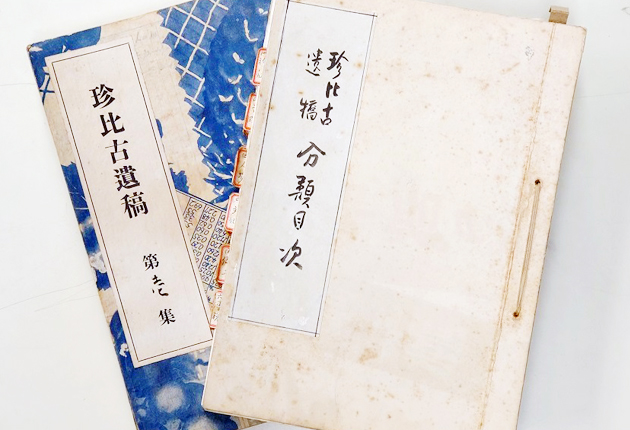 珍比古遺稿
第壱集
珍比古
遺稿
分類目次